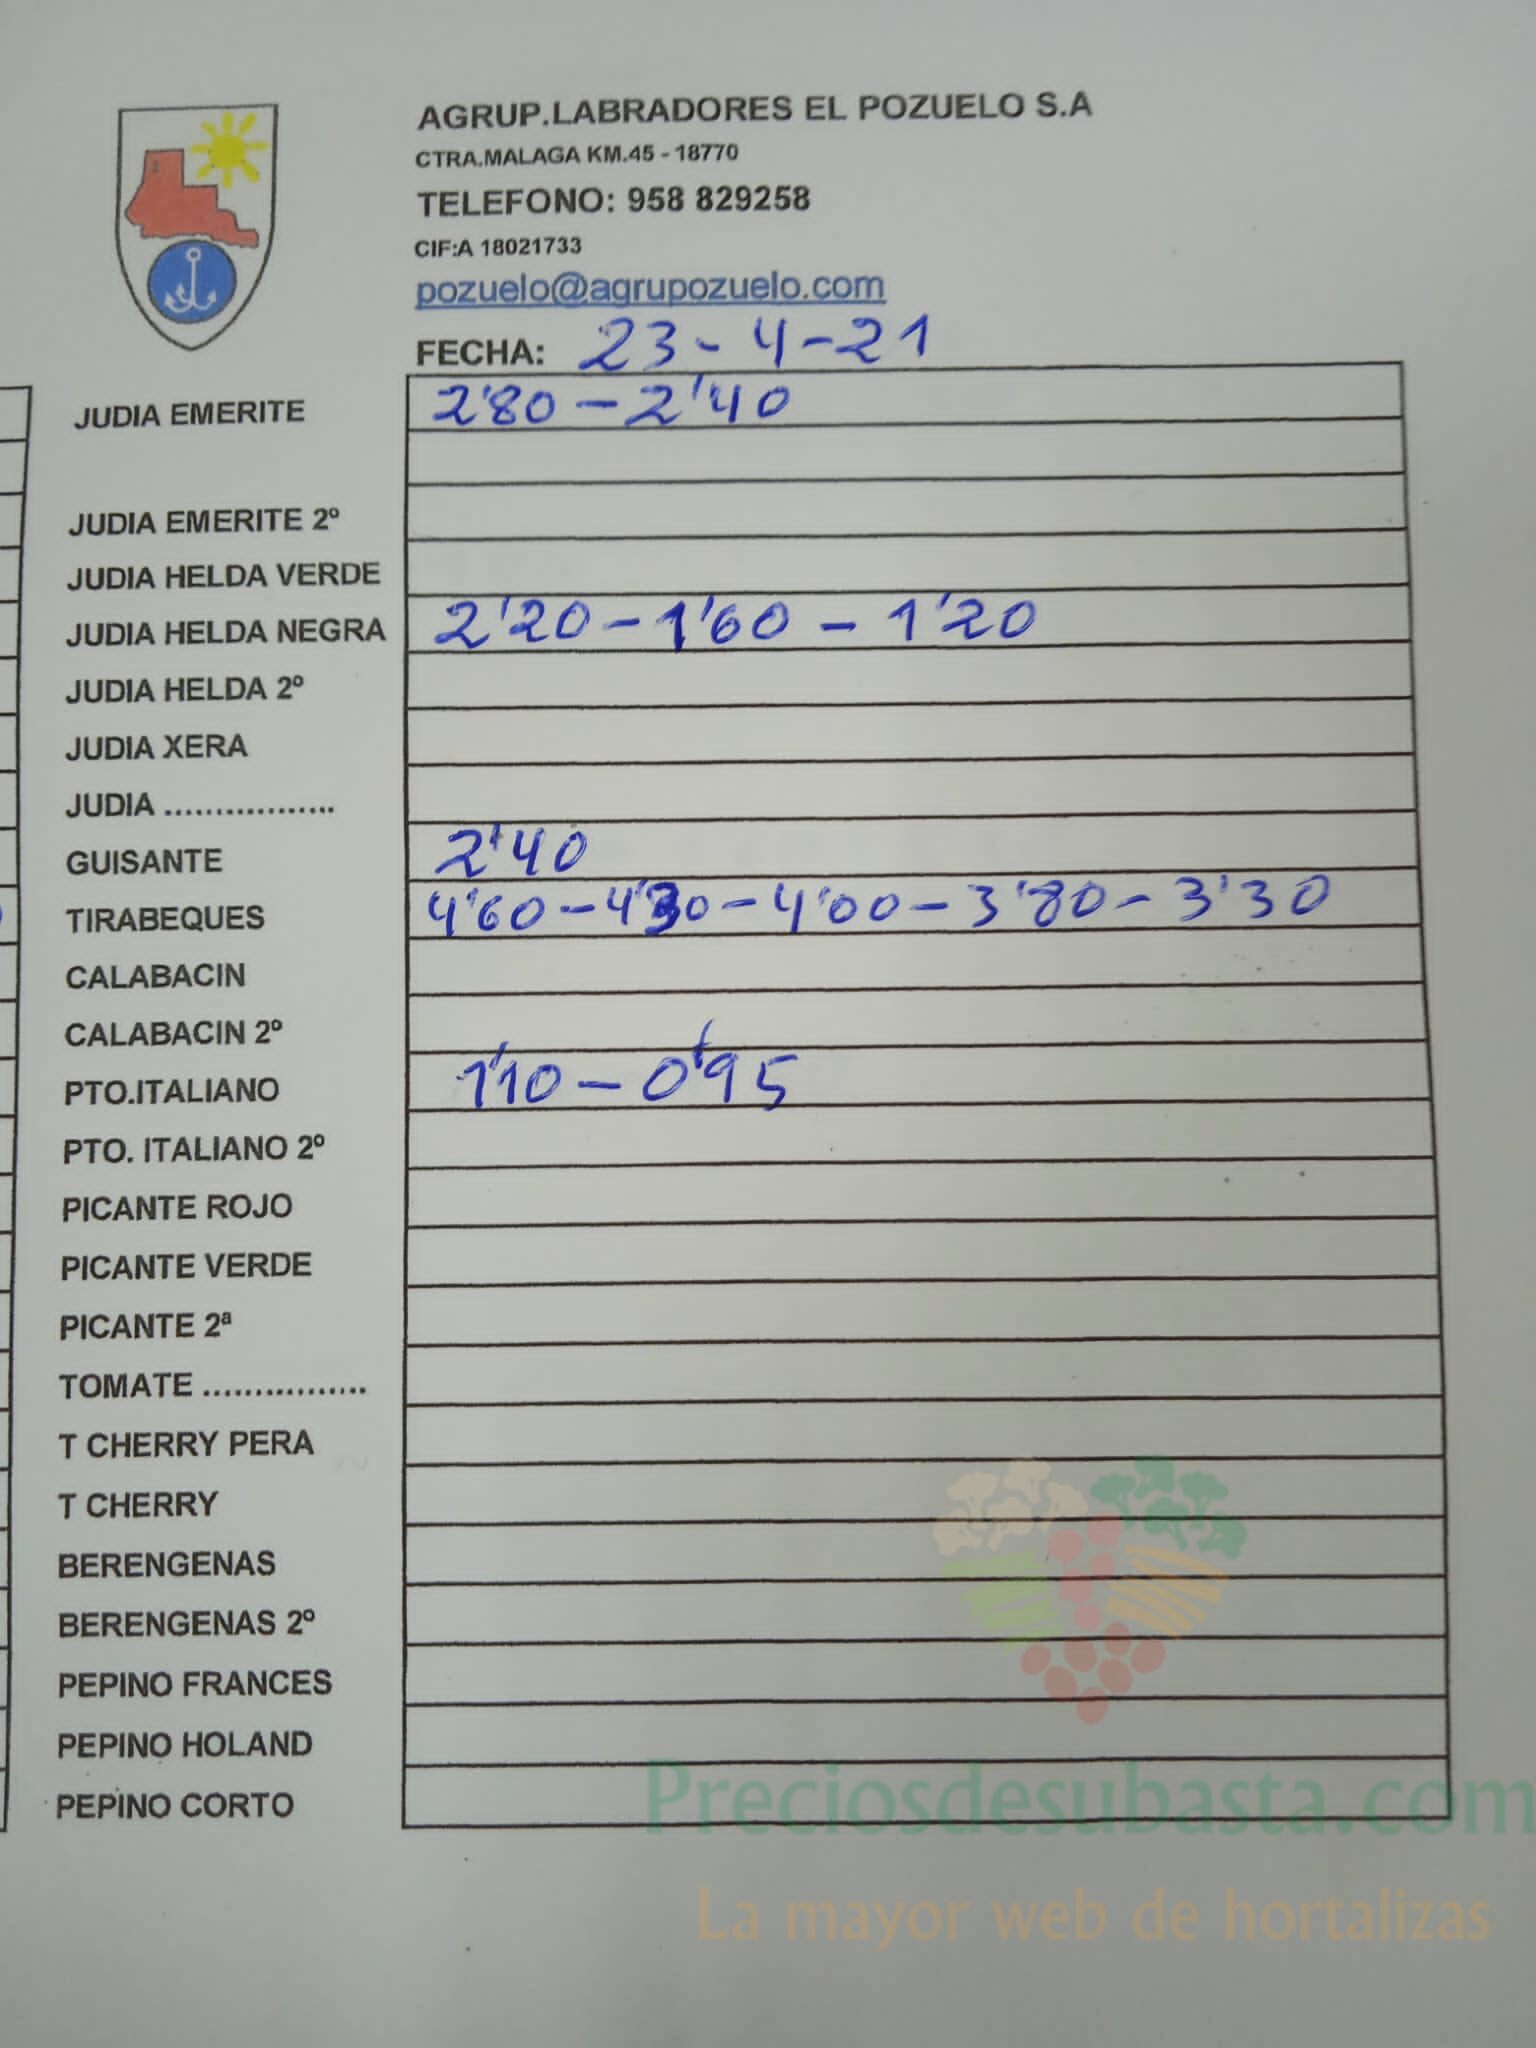 AGRUP.LABRADORES EL POZUELO S.A
CTRA.MALAGA KM.45 - 18770
TELEFONO: 958 829258
CIF:A 18021733
pozuelo@agrupozuelo.com
FECHA: 23-4-21
JUDIA EMERITE 2'80 - 2'40
JUDIA EMERITE 2º
JUDIA HELDA VERDE
JUDIA HELDA NEGRA 2'20 - 1'60 - 1'20
JUDIA HELDA 2º
JUDIA XERA
JUDIA .................
GUISANTE 2'40
TIRABEQUES 4'60 - 4'30 - 4'00 - 3'80 - 3'30
CALABACIN
CALABACIN 2º
PTO.ITALIANO 1'10 - 0'95
PTO. ITALIANO 2º
PICANTE ROJO
PICANTE VERDE
PICANTE 2ª
TOMATE ................
T CHERRY PERA
T CHERRY
BERENGENAS
BERENGENAS 2º
PEPINO FRANCES
PEPINO HOLAND
PEPINO CORTO
Preciosdesubasta.com
La mayor web de hortalizas